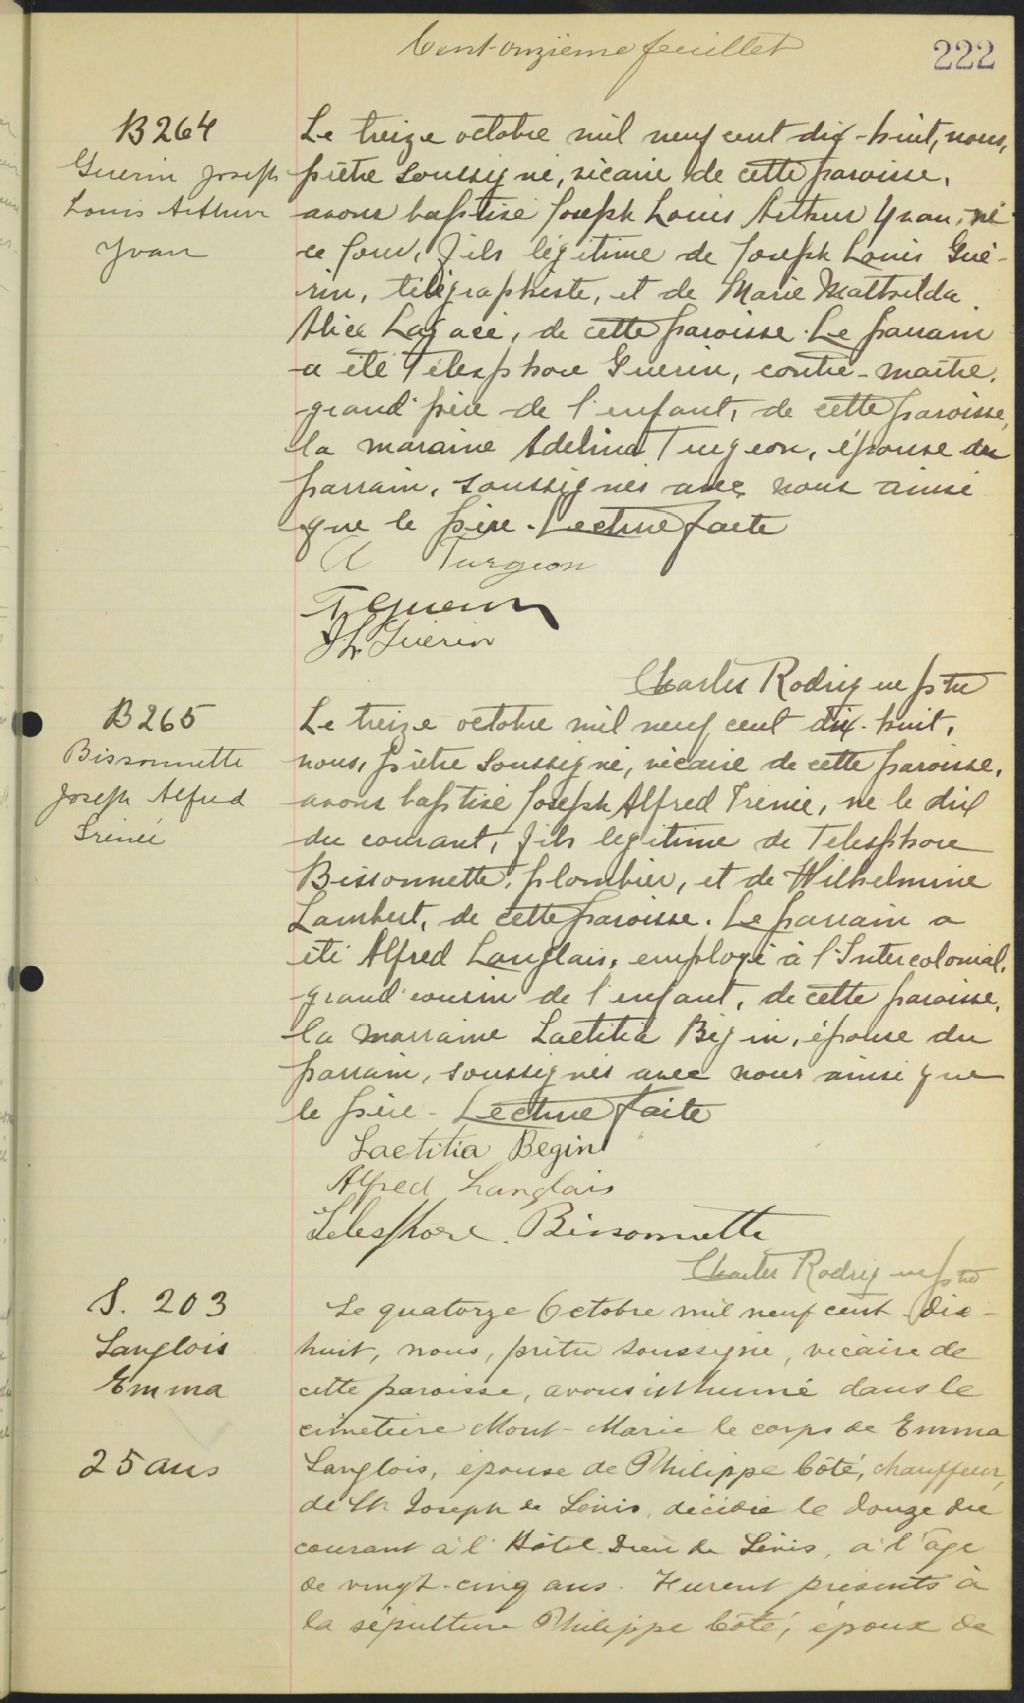 Cent-onzième feuillet
222
B 264
Guerin Joseph
Louis Arthur
Yvan
Le treize octobre mil neuf cent dix-huit, nous,
prêtre soussigné, vicaire de cette paroisse,
avons baptisé Joseph Louis Arthur Yvan, né
ce jour, fils légitime de Joseph Louis Gué-
rin, télégraphiste, et de Marie Mathilda
Alice Lagacé, de cette paroisse. Le parrain
a été Télesphore Guerin, contre-maître,
grand'père de l'enfant, de cette paroisse,
la maraine Adelina Turgeon, épouse du
parrain, soussignés avec nous ainsi
que le père. Lecture faite
A Turgeon
T. Guerin
J L Guerin
Charles Rodrigue ptre
B 265
Bissonnette
Joseph Alfred
Irénée
Le treize octobre mil neuf cent dix-huit,
nous, prêtre soussigné, vicaire de cette paroisse,
avons baptisé Joseph Alfred Irénée, né le dix
du courant, fils légitime de Telesphore
Bissonnette, plombier, et de Wilhelmine
Lambert, de cette paroisse. Le parrain a
été Alfred Langlais, employé à l'Intercolonial,
grand cousin de l'enfant, de cette paroisse,
la marraine Laetitia Bégin, épouse du
parrain, soussignés avec nous ainsi que
le père - Lecture faite
Laetitia Begin
Alfred Langlais
Telesphore Bissonnette
Charles Rodrigue ptre
S. 203
Langlois
Emma
25 ans
Le quatorze Octobre mil neuf cent dix-
huit, nous, prêtre soussigné, vicaire de
cette paroisse, avons inhumé dans le
cimetière Mont-Marie le corps de Emma
Langlois, épouse de Philippe Côté, chauffeur,
de St Joseph de Lévis, décédée le douze du
courant à l'Hôtel Dieu de Lévis, à l'âge
de vingt-cinq ans. Furent présents à
la sépulture Philippe Côté, époux de